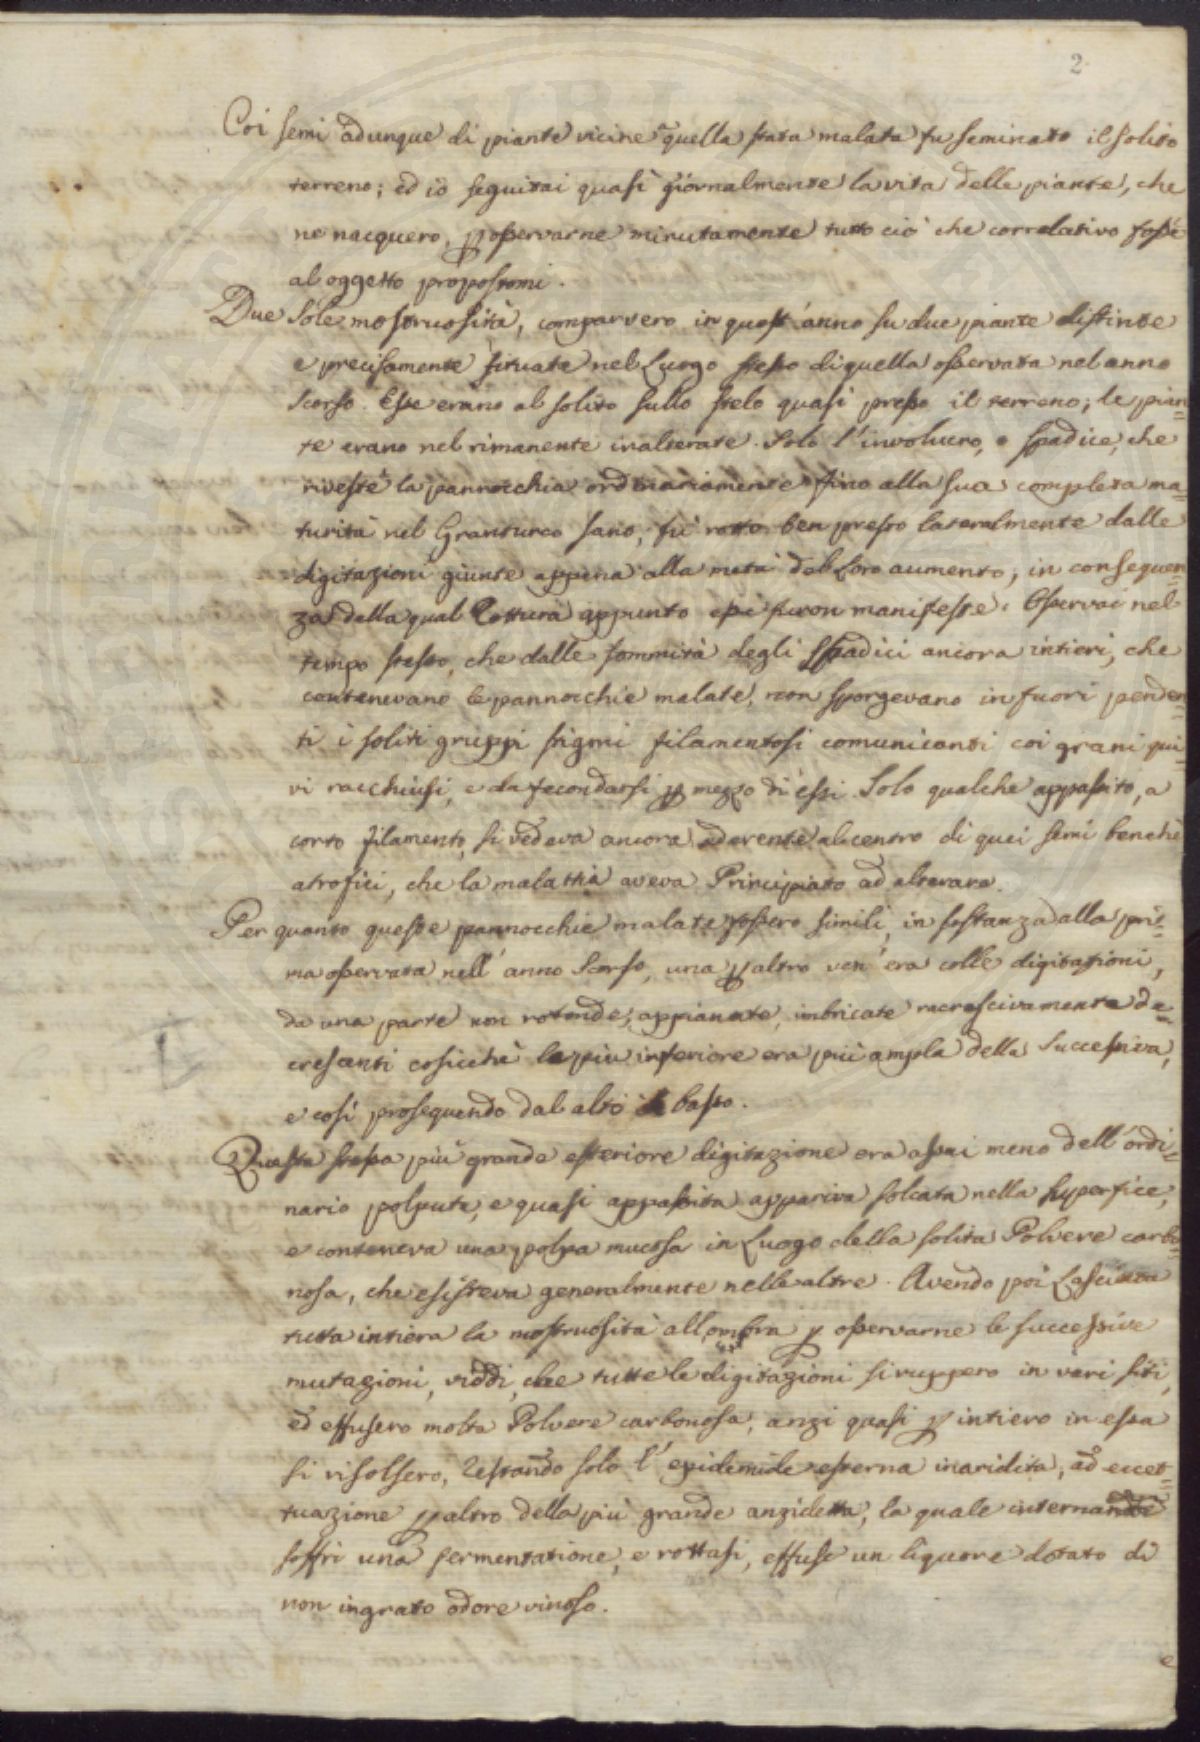 2
Coi semi adunque di piante vicine a quella stata malata fu seminato il solito
terreno; ed io seguitai quasi giornalmente la vita delle piante, che
ne nacquero, p osservarne minutamente tutto ciò che correlativo fosse
al oggetto propostomi.
Due sole mostruosità, comparvero in quest'anno su due piante distinte
e precisamente situate nel Luogo stesso di quella osservata nel anno
scorso. Esse erano al solito sullo stelo quasi presso il terreno; le pian=
te erano nel rimanente inalterate. Solo l'involucro, o spadice, che
riveste la pannocchia ordinariamente fino alla sua completa ma=
turità nel Granturco sano, fù rotto ben presto lateralmente dalle
digitazioni giunte appena alla metà del Loro aumento; in conseguen=
za della qual Rottura appunto essi furon manifeste. Osservai nel
tempo stesso, che dalle sommità degli Spadici ancora intieri, che
contenevano le pannocchie malate, non sporgevano in fuori penden=
ti i soliti gruppi stigmi filamentosi comunicanti coi grani qui=
vi racchiusi, e da fecondarsi p mezzo di essi. Solo qualche appassito, a
corto filamento, si vedeva ancora aderente al centro di quei semi benchè
atrofici, che la malattia aveva Principiato ad alterare.
Per quanto queste pannocchie malate fossero simili, in sostanza alla pri=
ma osservata nell'anno scorso, una p altro ven'era colle digitazioni,
da una parte non rotonde, appianate, imbricate de=
crescenti cosicchè la più inferiore era più ampla della successiva,
e così proseguendo dal alto basso.
Questa stessa più grande esteriore digitazione era assai meno dell'ordi=
nario polputa, e quasi appassita appariva solcata nella superfice,
e conteneva una polpa mucosa in Luogo della solita Polvere carbo=
nosa, che esisteva generalmente nelle altre. Avendo poi Lasciata
tutta intiera la mostruosità all'ombra p osservarne le successive
mutazioni, viddi, che tutte le digitazioni si ruppero in vari siti,
ed effusero molta Polvere carbonosa, anzi quasi p intiero in essa
si risolsero, Restando solo l'epidemide esterna inaridita, ad eccet=
tuazione p altro della più grande anzidetta, la quale internam͞te
soffrì una fermentatione, e rottasi, effuse un liquore dotato di
non ingrato odore vinoso.
e